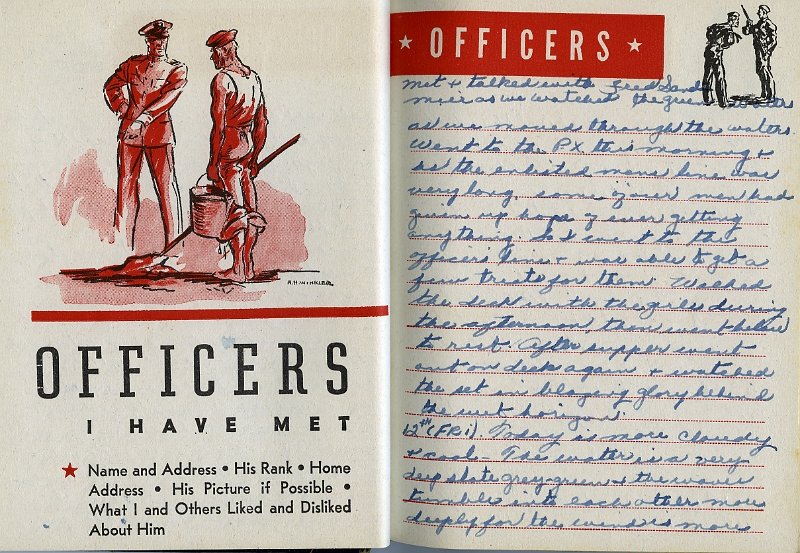 A.H. WINKLER
OFFICERS
I HAVE MET
★ Name and Address • His Rank • Home
Address • His Picture if Possible •
What I and Others Liked and Disliked
About Him
★ OFFICERS ★
met + talked with Fred
as we watched the green
as we moved through the waters.
Went to the PX this morning +
as the enlisted mens line was
very long, some of our men had
given up hope of ever getting
anything. So I went to the
officers line + was able to get a
few treats for them. Walked
the deck with the girls during
the afternoon, then went below
to rest. After supper went
out on deck again + watched
the set in blazing glory behind
the wet horizon.
12th (FRI) Today is more cloudy
+ cool - The water is a very
deep slate grey-green + the waves
tumble into each other more
deeply for the wind is more